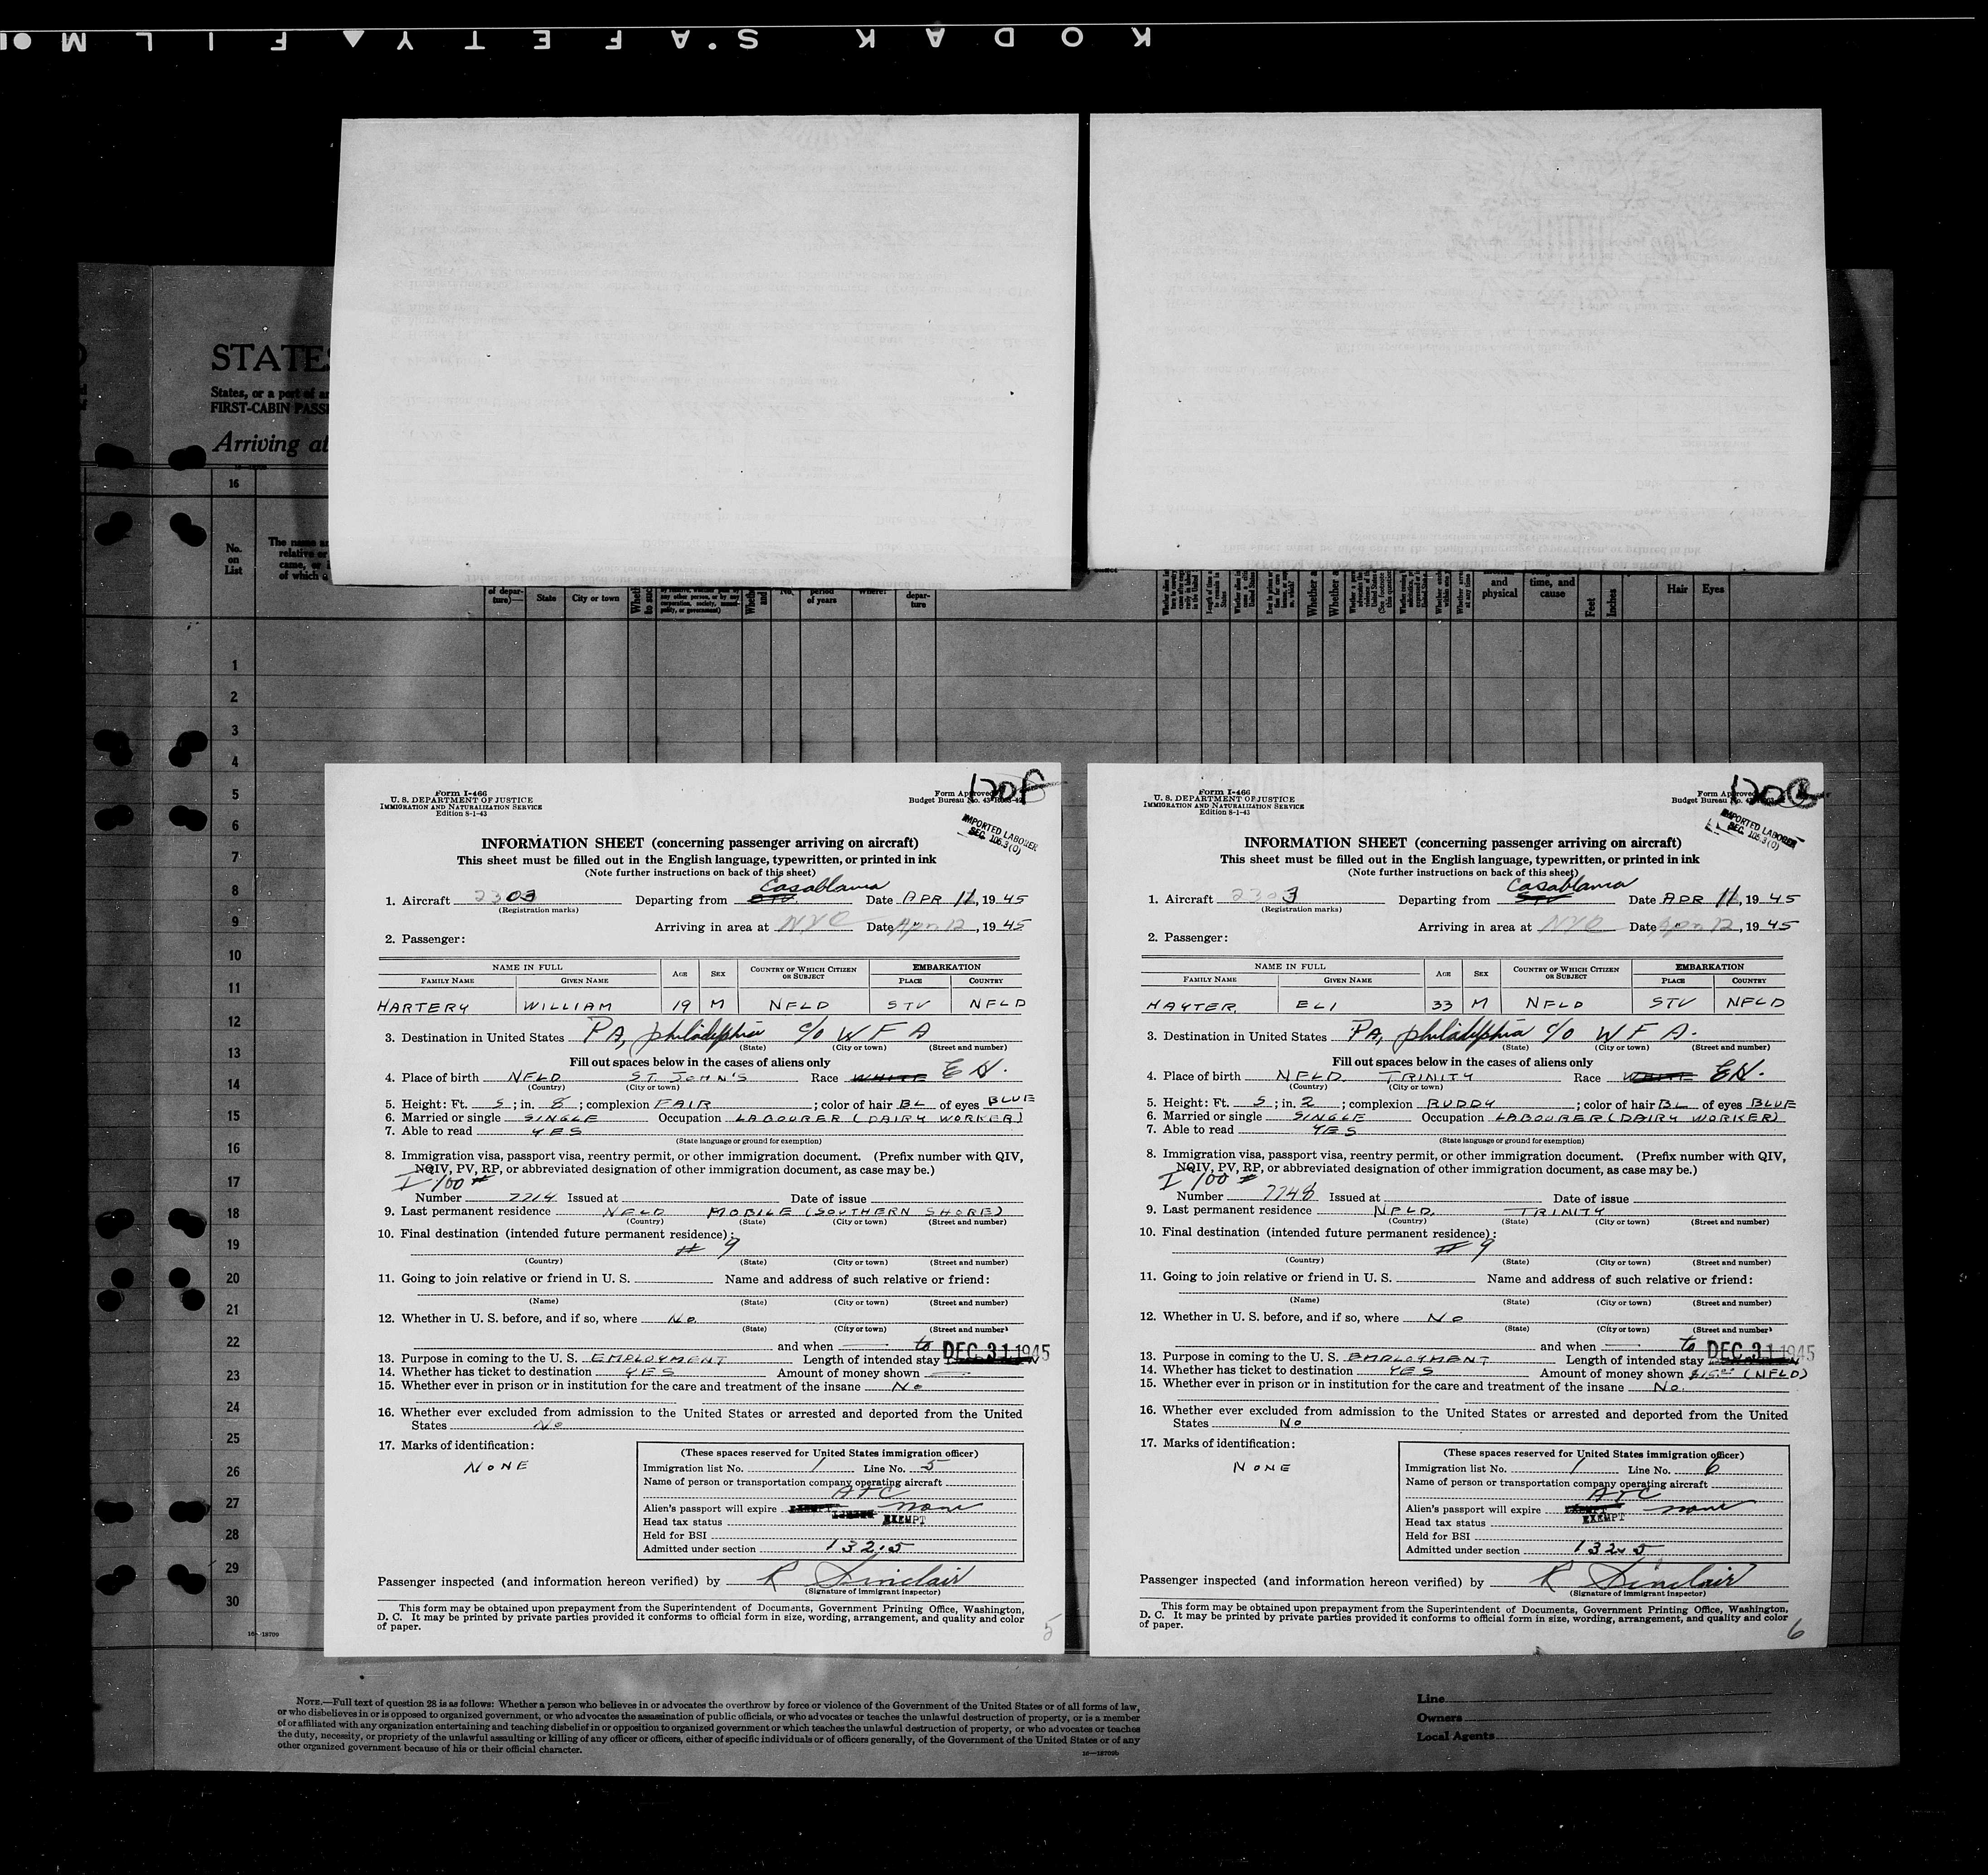 KODAK SAFETY FILM
STATES
States, or a part of an
FIRST-CABIN PASSE
Arriving at
16
No. on List
The name an
relative or
came, or
of which a
of depar-
ture)—
State
City or town
No.
period
of years
Where?
depar-
ture
and
physical
time, and
cause
Feet
Inches
Hair
Eyes
1
2
3
4
5
6
7
8
9
10
11
12
13
14
15
16
17
18
19
20
21
22
23
24
25
26
27
28
29
30
16—18709
Form I-466
U. S. DEPARTMENT OF JUSTICE
IMMIGRATION AND NATURALIZATION SERVICE
Edition 8-1-43
Form Approved
Budget Bureau No.
IMPORTED LABORER
SEC. 105.3(O)
INFORMATION SHEET (concerning passenger arriving on aircraft)
This sheet must be filled out in the English language, typewritten, or printed in ink
(Note further instructions on back of this sheet)
Casablanca
1. Aircraft 2303 Departing from STV. Date APR 11, 1945
(Registration marks)
Arriving in area at NYC Date Apr. 12, 1945
2. Passenger:
NAME IN FULL AGE SEX COUNTRY OF WHICH CITIZEN OR SUBJECT EMBARKATION
FAMILY NAME GIVEN NAME PLACE COUNTRY
HARTERY WILLIAM 19 M NFLD STV NFLD
3. Destination in United States PA, philadelphia c/o W F A
(State) (City or town) (Street and number)
Fill out spaces below in the cases of aliens only
4. Place of birth NFLD ST. JOHN'S Race WHITE EN.
(Country) (City or town)
5. Height: Ft. 5; in. 8; complexion FAIR; color of hair BL of eyes BLUE
6. Married or single SINGLE Occupation LABOURER (DAIRY WORKER)
7. Able to read YES
(State language or ground for exemption)
8. Immigration visa, passport visa, reentry permit, or other immigration document. (Prefix number with QIV,
NQIV, PV, RP, or abbreviated designation of other immigration document, as case may be.)
I 100 #
Number 7714 Issued at Date of issue
9. Last permanent residence NFLD MOBILE (SOUTHERN SHORE)
(Country) (State) (City or town) (Street and number)
10. Final destination (intended future permanent residence):
# 9
(Country) (State) (City or town) (Street and number)
11. Going to join relative or friend in U. S. Name and address of such relative or friend:
(Name) (State) (City or town) (Street and number)
12. Whether in U. S. before, and if so, where No
(State) (City or town) (Street and number)
and when to DEC 31 1945
13. Purpose in coming to the U. S. EMPLOYMENT Length of intended stay
14. Whether has ticket to destination YES Amount of money shown
15. Whether ever in prison or in institution for the care and treatment of the insane No
16. Whether ever excluded from admission to the United States or arrested and deported from the United
States No
17. Marks of identification:
NONE
(These spaces reserved for United States immigration officer)
Immigration list No. 1 Line No. 5
Name of person or transportation company operating aircraft
ATC
Alien's passport will expire none
Head tax status EXEMPT
Held for BSI
Admitted under section 132.5
Passenger inspected (and information hereon verified) by R Sinclair
(Signature of immigrant inspector)
This form may be obtained upon prepayment from the Superintendent of Documents, Government Printing Office, Washington,
D. C. It may be printed by private parties provided it conforms to official form in size, wording, arrangement, and quality and color
of paper.
5
Form I-466
U. S. DEPARTMENT OF JUSTICE
IMMIGRATION AND NATURALIZATION SERVICE
Edition 8-1-43
Form Approved
Budget Bureau No.
IMPORTED LABORER
SEC. 105.3(O)
INFORMATION SHEET (concerning passenger arriving on aircraft)
This sheet must be filled out in the English language, typewritten, or printed in ink
(Note further instructions on back of this sheet)
Casablanca
1. Aircraft 2303 Departing from STV Date APR 11, 1945
(Registration marks)
Arriving in area at NYC Date Apr. 12, 1945
2. Passenger:
NAME IN FULL AGE SEX COUNTRY OF WHICH CITIZEN OR SUBJECT EMBARKATION
FAMILY NAME GIVEN NAME PLACE COUNTRY
HAYTER ELI 33 M NFLD STV NFLD
3. Destination in United States PA, philadelphia c/o W F A.
(State) (City or town) (Street and number)
Fill out spaces below in the cases of aliens only
4. Place of birth NFLD. TRINITY Race WHITE EN.
(Country) (City or town)
5. Height: Ft. 5; in. 2; complexion RUDDY; color of hair BL. of eyes BLUE
6. Married or single SINGLE Occupation LABOURER (DAIRY WORKER)
7. Able to read YES
(State language or ground for exemption)
8. Immigration visa, passport visa, reentry permit, or other immigration document. (Prefix number with QIV,
NQIV, PV, RP, or abbreviated designation of other immigration document, as case may be.)
I 100 #
Number 7748 Issued at Date of issue
9. Last permanent residence NFLD. TRINITY
(Country) (State) (City or town) (Street and number)
10. Final destination (intended future permanent residence):
# 9
(Country) (State) (City or town) (Street and number)
11. Going to join relative or friend in U. S. Name and address of such relative or friend:
(Name) (State) (City or town) (Street and number)
12. Whether in U. S. before, and if so, where No
(State) (City or town) (Street and number)
and when to DEC 31 1945
13. Purpose in coming to the U. S. EMPLOYMENT Length of intended stay
14. Whether has ticket to destination YES Amount of money shown $15.00 (NFLD)
15. Whether ever in prison or in institution for the care and treatment of the insane No.
16. Whether ever excluded from admission to the United States or arrested and deported from the United
States No
17. Marks of identification:
NONE
(These spaces reserved for United States immigration officer)
Immigration list No. 1 Line No. 6
Name of person or transportation company operating aircraft
ATC
Alien's passport will expire none
Head tax status EXEMPT
Held for BSI
Admitted under section 132.5
Passenger inspected (and information hereon verified) by R Sinclair
(Signature of immigrant inspector)
This form may be obtained upon prepayment from the Superintendent of Documents, Government Printing Office, Washington,
D. C. It may be printed by private parties provided it conforms to official form in size, wording, arrangement, and quality and color
of paper.
6
NOTE.—Full text of question 28 is as follows: Whether a person who believes in or advocates the overthrow by force or violence of the Government of the United States or of all forms of law,
or who disbelieves in or is opposed to organized government, or who advocates the assassination of public officials, or who advocates or teaches the unlawful destruction of property, or is a member
of or affiliated with any organization entertaining and teaching disbelief in or opposition to organized government or which teaches the unlawful destruction of property, or who advocates or teaches
the duty, necessity, or propriety of the unlawful assaulting or killing of any officer or officers, either of specific individuals or of officers generally, of the Government of the United States or of any
other organized government because of his or their official character.
16—18709b
Line
Owners
Local Agents